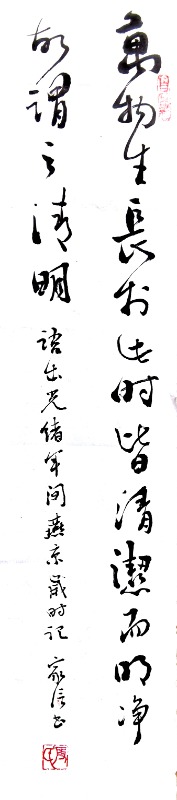 萬物生長於此时皆清潔而明净
故謂之清明
语出光绪年间燕京歲时记 家信书